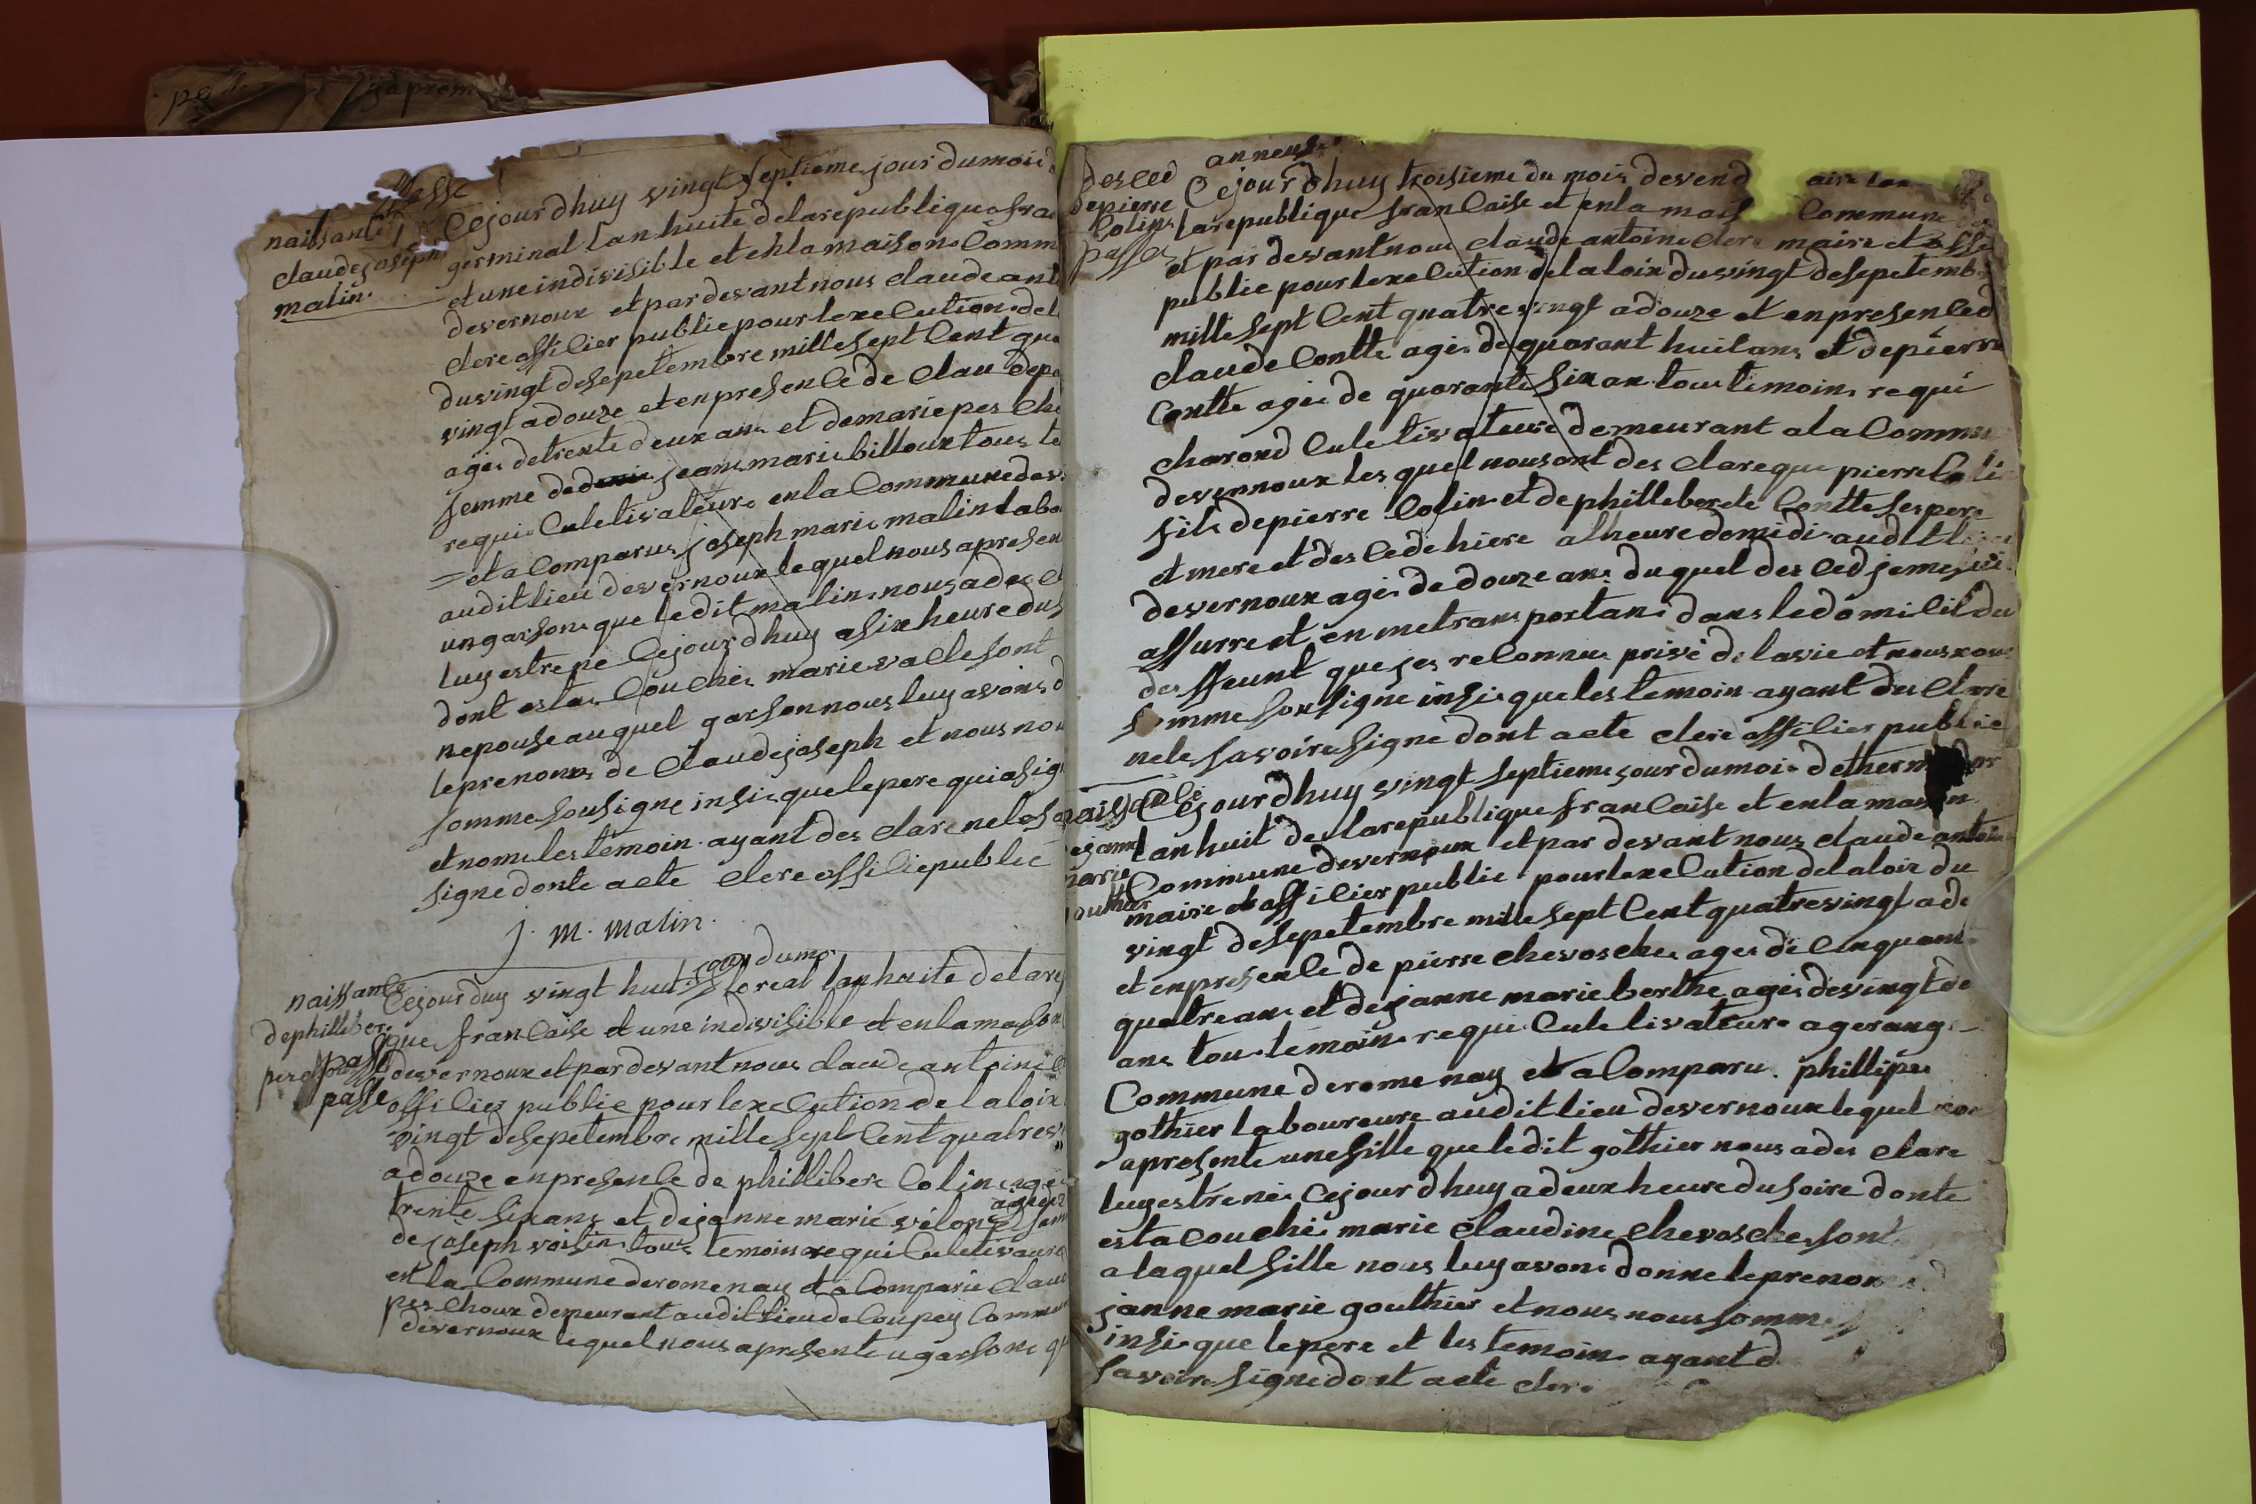 passe
naissance
claude joseph
malin
Cejourdhuy vingt septieme jour du mois d
germinal lan huite de la republique fra
et une indivisible et en la maison Comm
de vernoux et par devant nous claude ant
clere officier public pour lexecution de l
du vingt de sepetembre mille sept Cent qua
vingt a douze et en presence de clau depe
agés de trente deux ans et de marie pes cho
femme de jean marie billoux tous te
requis Culetivateurs en la Commune de v
= et a Comparus joseph marie malin labo
audit lieu de vernoux le quel nous apresen
un garsons que le dit malins nous a des cl
luy estre ne Cejourdhuy a six heure du s
dont esta Couchés marie vacle sont
nepouse au quel garson nous luy avons d
le prenoms de Claude joseph et nous nou
somme sousigne insis que le pere qui a sig
et nom les temoin ayant des clare ne le sa
signe donte acte clere officie public
j. m. malin
naissance
de philliber
pes choux
passe
Cejourduy vingt huit jour du mo floreal lan huite de la rep
que francaise et une indivisible et en la maison
de vernoux et par devant nous claude antoine cl
officier public pour lexecution de la loix
vingt de sepetembre mille sept Cent quatrev
a douze en presence de philliberc Colin agé
trente six ans et de janne marie velon agee fem
de joseph voisin tous temoins requi Culetivaure
en la Commune de romenay et a Comparu clau
pes choux demeurant audit lieu de Coupey Commun
de vernoux le quel nous apresente u garsone q
des ced
de pierre
Colin
passe
anneuse
Cejourdhuy troisieme du mois de vend aire lan
la republique francaise et en la mais Commune
et par devant nous claude antoine clere maire et offi
public pour lexecution de la loix du vingt de sepetemb
mille sept Cent quatre vingt a douze et en presence d
claude Contte agés de quarant huit ans et de pierre
Contte agés de quarante six an tous temoins requi
charond Culetivateurs demeurant a la Commu
de vernoux les quel nous ont des clare que pierre Coli
fils de pierre Colin et de philleberte Contte ses pere
et mere et des cede hiere a lheure de midi audit lieu
de vernoux agés de douze ans du quel des ced je me suis
assurre et en me transportans dans le domicil du
deffeunt que jes reconnus privé de la vie et nous nous
somme sousigne insis que les temoin ayant des clare
ne le savoire signe dont acte clere officier public
naissance
de janne
marie
gouthier
Cejourdhuy vingt septieme jour du mois de therm dor
lan huit de la republique francaise et en la maison
Commune de vernoux et par devant nous claude antoine
maire et officier public pour lexecution de la loix du
vingt de sepetembre mille sept Cent quatre vingt a do
et en presence de pierre chevoschee ages de cinquante
quatre ans et de janne marie berthe agés de vingt de
ans tous temoins requis Culetivateurs
Commune de romenay et a Comparu phillipes
gothier laboureure audit lieu de vernoux le quel nou
apresente une fille que le dit gothier nous a des clare
luy estre neé Cejourdhuy a deux heure du soire donte
esta Couché marie claudine chevoschee sont
a la quel fille nous luy avons donne le prenom
janne marie gouthier et nous nous somme
insi que le pere et les temoins ayant d
savoire signe dont acte clere